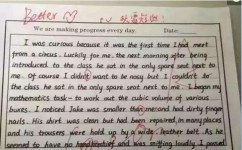 Better
We are making progress every day. Date:
I was curious because it was the first time I had met
from a circus. Luckily for me, the next morning after being
introduced to the class he sat in the only spare seat next to
me. Of course I didn't want to be nosy but I couldn't to
the class he sat in the only spare seat next to me. I began my
mathematics task - to work out the cubic volume of various
buxes. I noticed Jake was smaller than me and had dirty finger
nails. His shirt was clean but had been repaired in many places
and his trousers were hold up by a wide leather belt. As he
seemed to have no handkerchief and was sniffing loudly I passed